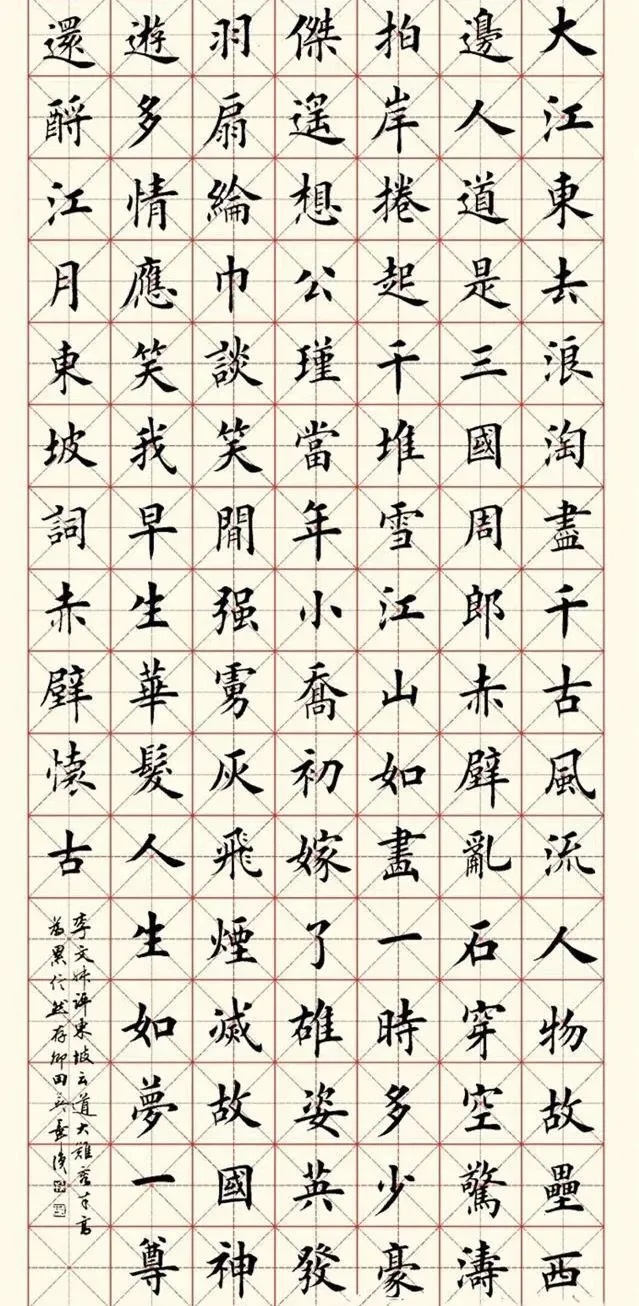 大江東去浪淘盡千古風流人物故壘西
邊人道是三國周郎赤壁亂石穿空驚濤
拍岸捲起千堆雪江山如畫一時多少豪
傑遙想公瑾當年小喬初嫁了雄姿英發
羽扇綸巾談笑閒强虜灰飛煙滅故國神
遊多情應笑我早生華髮人生如夢一尊
還酹江月東坡詞赤壁懷古
李評東坡云道大難容才高
為累信然存卿田英